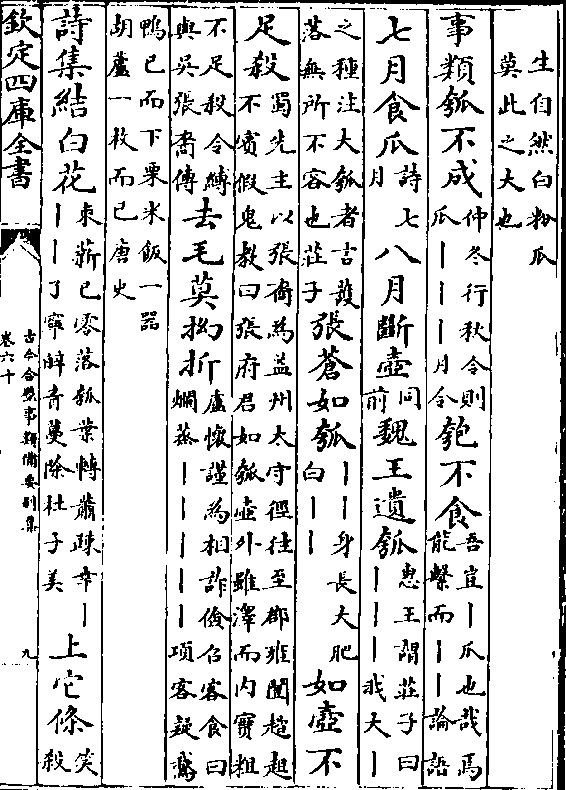 生自然白粉瓜
莫此之大也
事類瓠不成仲冬行秋令則瓜｜｜｜月令匏不食吾豈｜瓜也哉焉能繫而｜｜論語
七月食瓜詩七月八月斷壺同前魏王遺瓠惠王謂莊子曰｜｜｜｜我大｜
之種注大瓠者言護落無所不容也莊子張蒼如瓠｜｜身長大肥白｜｜如壺不
足殺蜀先主以張裔為益州太守徑往至郡雍闓趑趄不賓假鬼教曰張府君如瓠壺外雖澤而内實粗
不足殺令縛與吳張裔傳去毛莫拗折盧懷謹為相詐儉召客食曰爛蒸｜｜｜｜｜項客疑鵝
鴨已而下粟米飯一器
胡蘆一枚而已唐史
詩集結白花束薪已零落瓠葉轉蕭疎幸｜｜｜了寧辭青蔓除杜子美上它條笑殺
欽定四庫全書
古今合璧事類備要別集
卷六十
九